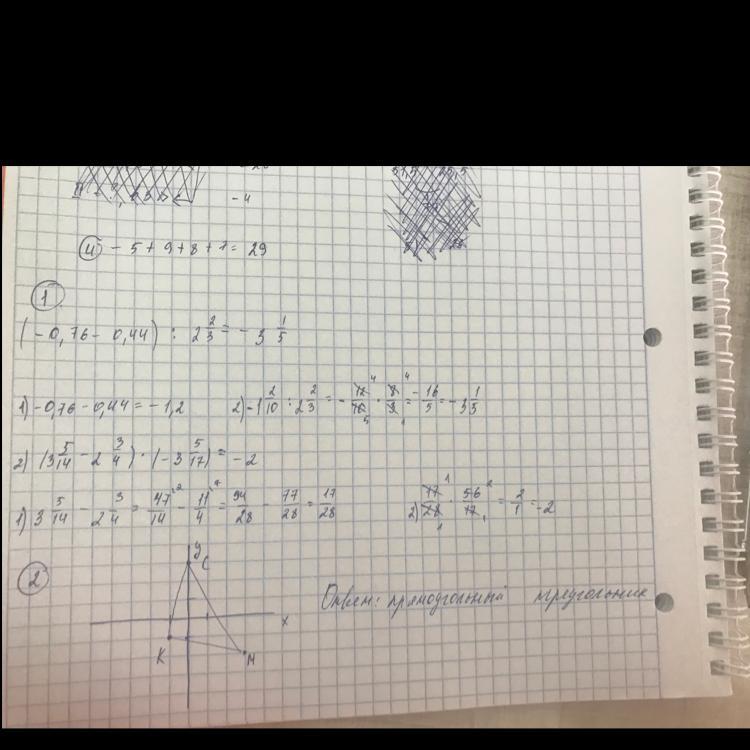 - 4
④ - 5 + 9 + 8 + 1 = 29
①
(-0,76 - 0,44) : 2 2/3 = - 3 1/5
1) -0,76 - 0,44 = - 1,2 2) -1 2/10 : 2 2/3 = - 12/10 · 8/3 = - 16/5 = - 3 1/5
2) (3 5/14 - 2 3/4) · (-3 5/17) = - 2
1) 3 5/14 - 2 3/4 = 47/14 - 11/4 = 94/28 - 77/28 = 17/28 2) 17/28 · 56/17 = 2/1 = -2
②
y
C
x
K
M
Ответ: прямоугольный треугольник